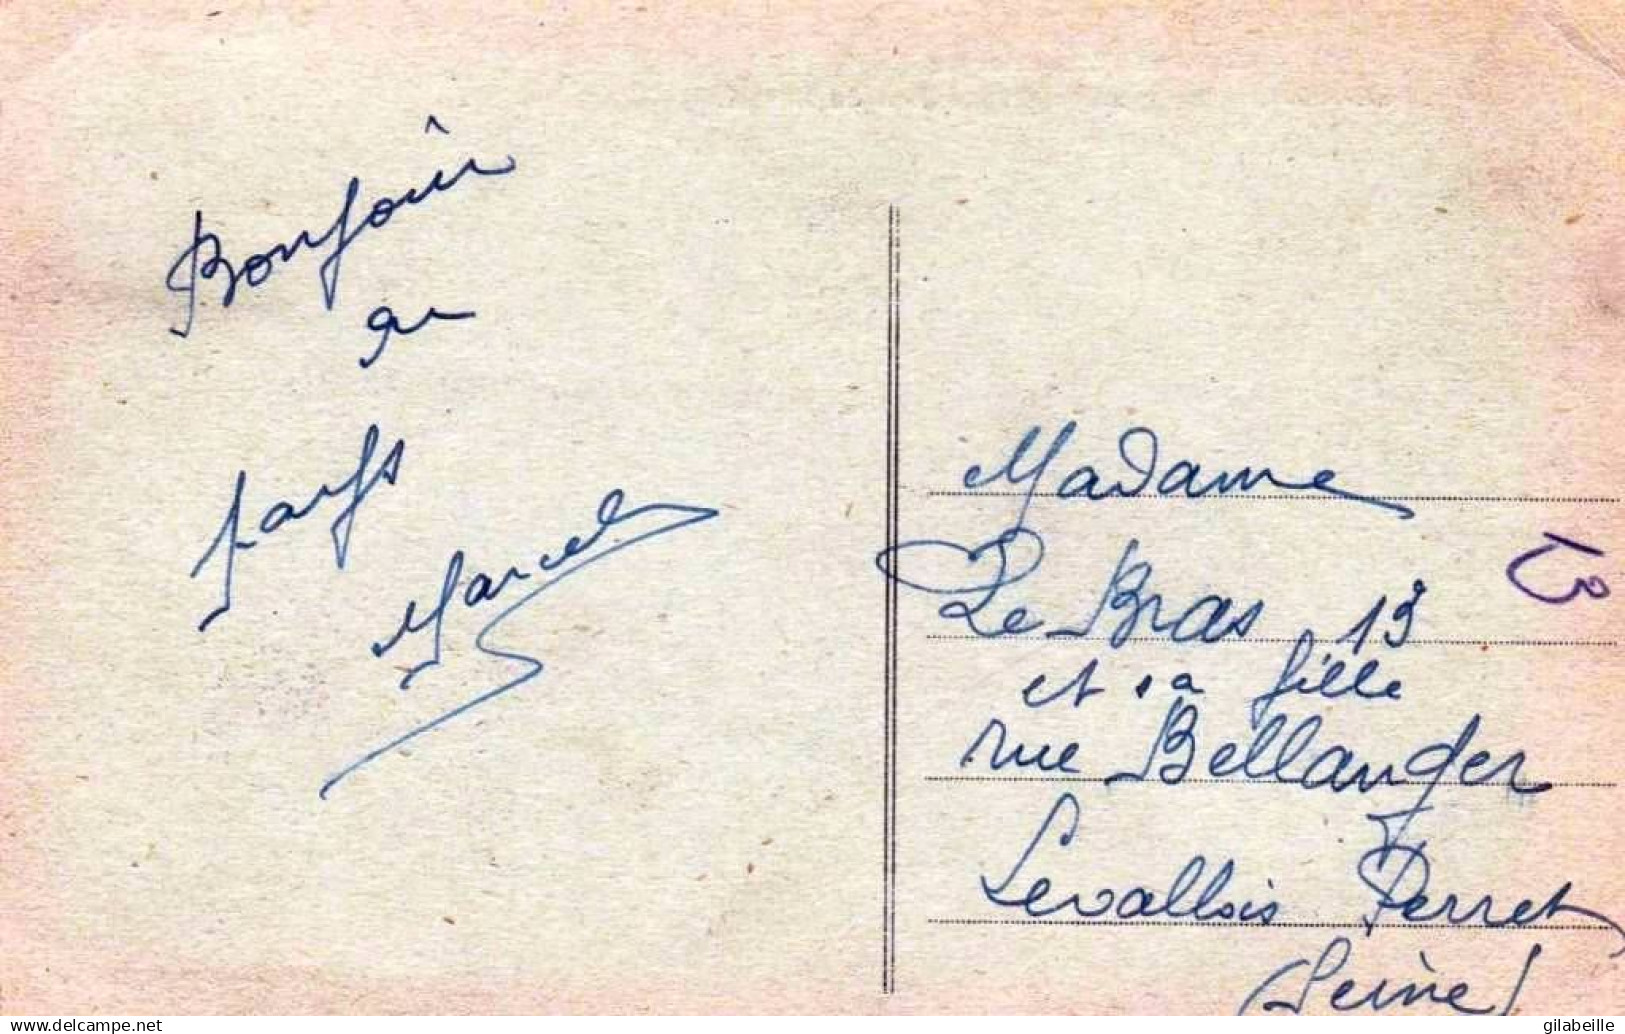 Bonjour
au
pays
Marcel
Madame
Le Bras 13
et sa fille
rue Bellanger
Levallois Perret
(Seine)
delcampe.net
gilabeille